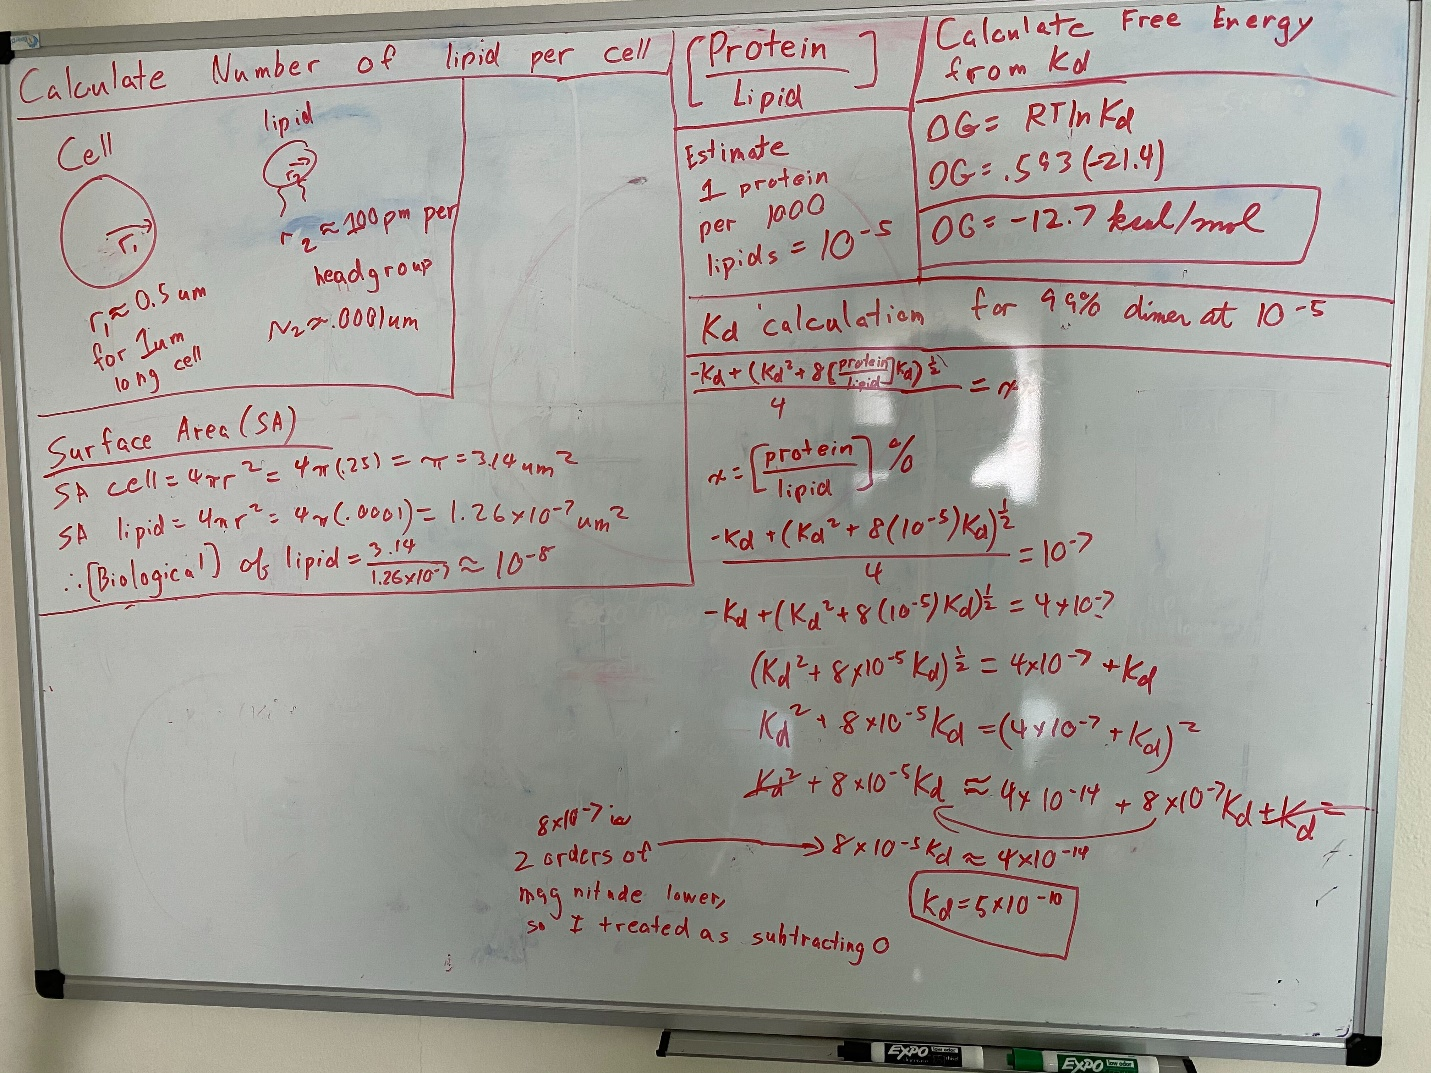 Calculate Number of lipid per cell
Cell
r₁
r₁ ≈ 0.5 um
for 1um
long cell
lipid
r₂
r₂ ≈ 100 pm per
headgroup
r₂ ≈ .0001um
Surface Area (SA)
SA cell = 4πr² = 4π(.25) = π = 3.14 um²
SA lipid = 4πr² = 4π(.0001) = 1.26×10⁻⁷ um²
∴ [Biological] of lipid = 3.14 / 1.26×10⁻⁷ ≈ 10⁻⁸
[Protein / Lipid]
Estimate
1 protein
per 1000
lipids = 10⁻⁵
Calculate Free Energy
from Kd
ΔG = RTlnKd
ΔG = .593 (-21.4)
ΔG = -12.7 kcal/mol
Kd calculation for 99% dimer at 10⁻⁵
(-Kd + (Kd² + 8[protein/lipid]Kd)^½) / 4 = x
x = [protein / lipid] %
(-Kd + (Kd² + 8(10⁻⁵)Kd)^½) / 4 = 10⁻⁷
-Kd + (Kd² + 8(10⁻⁵)Kd)^½ = 4×10⁻⁷
(Kd² + 8×10⁻⁵ Kd)^½ = 4×10⁻⁷ + Kd
Kd² + 8×10⁻⁵Kd = (4×10⁻⁷ + Kd)²
Kd² + 8×10⁻⁵Kd ≈ 4×10⁻¹⁴ + 8×10⁻⁷Kd + Kd²
8×10⁻⁷ is
2 orders of
magnitude lower,
so I treated as subtracting 0
8×10⁻⁵Kd ≈ 4×10⁻¹⁴
Kd = 5×10⁻¹⁰
EXPO low odor
EXPO low odor